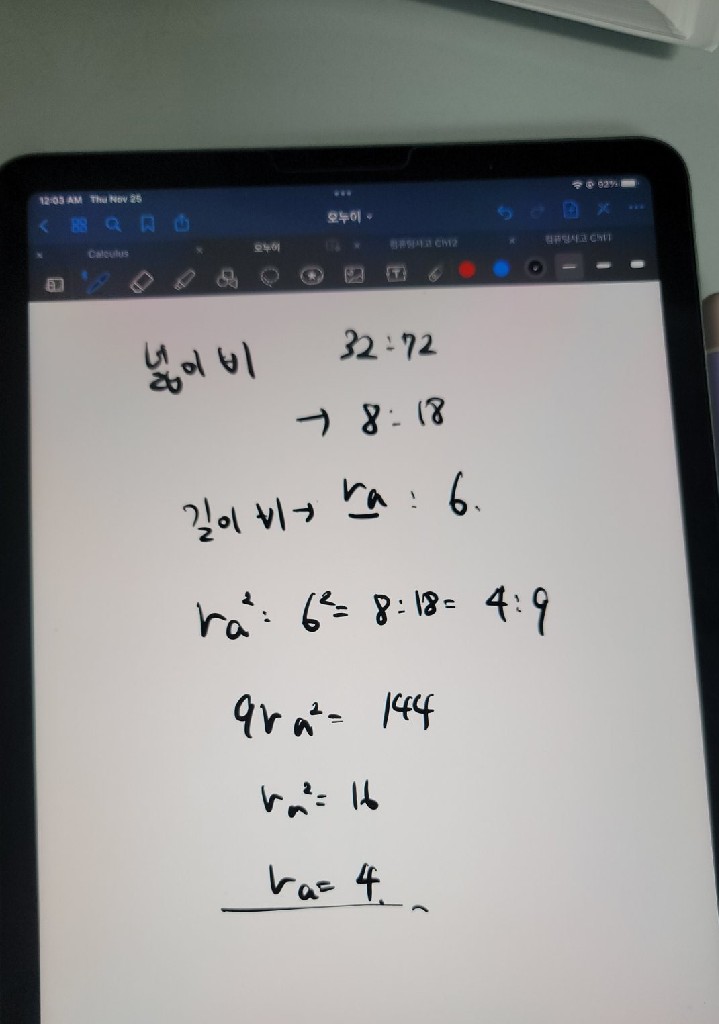 12:03 AM Thu Nov 25
62%
오누이
Calculus
오누이
컴퓨팅사고 Ch12
컴퓨팅사고 Ch11
넓이 비 32:72
→ 8:18
길이 비→ ra : 6.
ra²: 6²= 8:18= 4:9
9ra²= 144
ra²= 16
ra= 4.